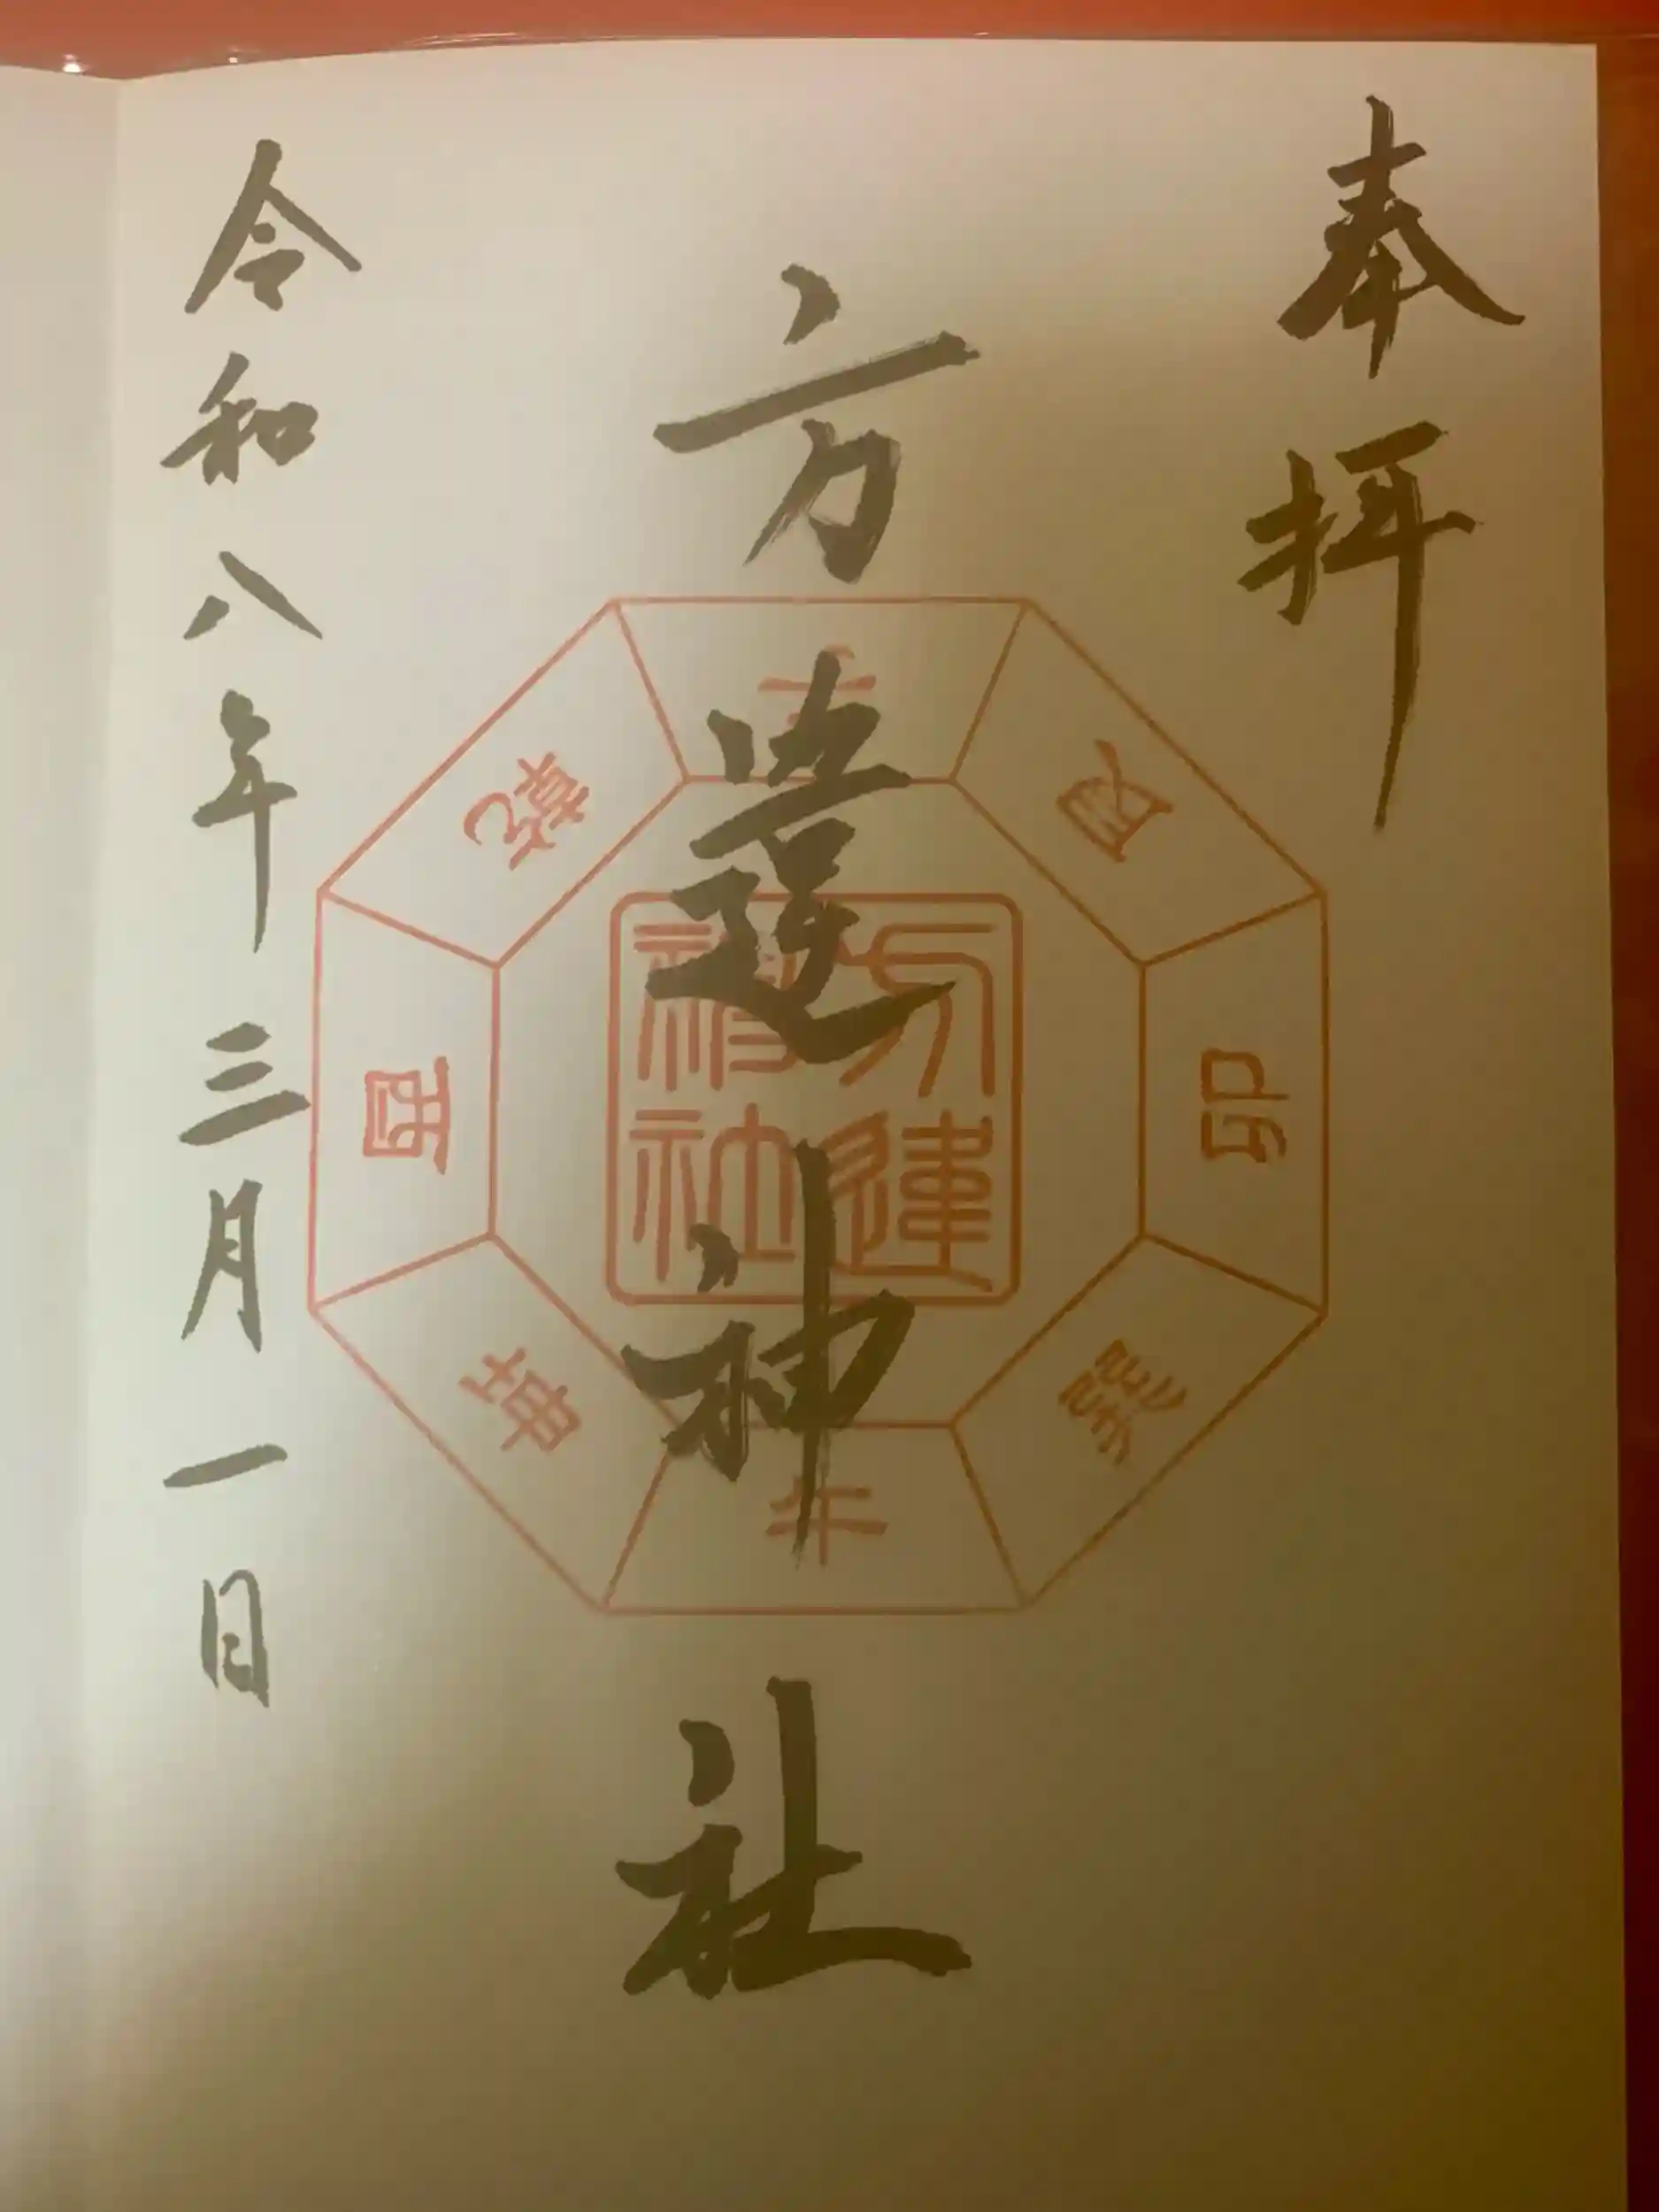 奉拝
方違神社
令和八年三月一日
方違
神社
艮
卯
巽
午
坤
酉
乾